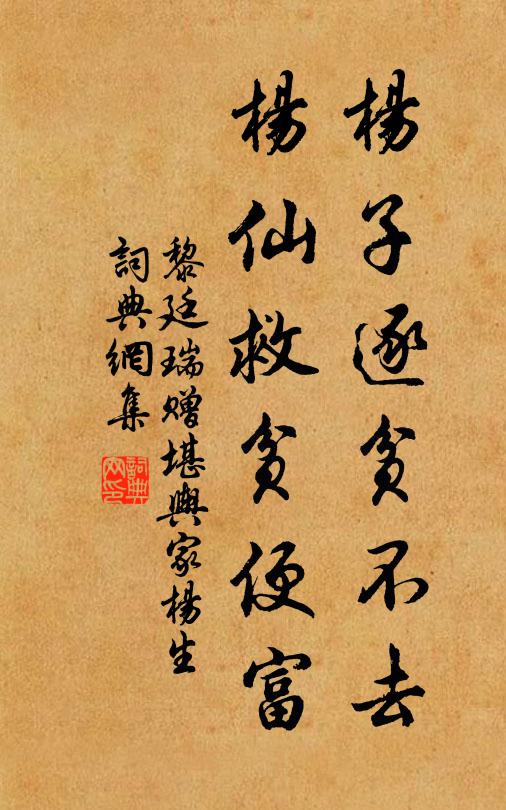 楊子逐貧不去
楊仙救貧便富
黎廷瑞贈堪輿家楊生
詞典網集
詞典
网印